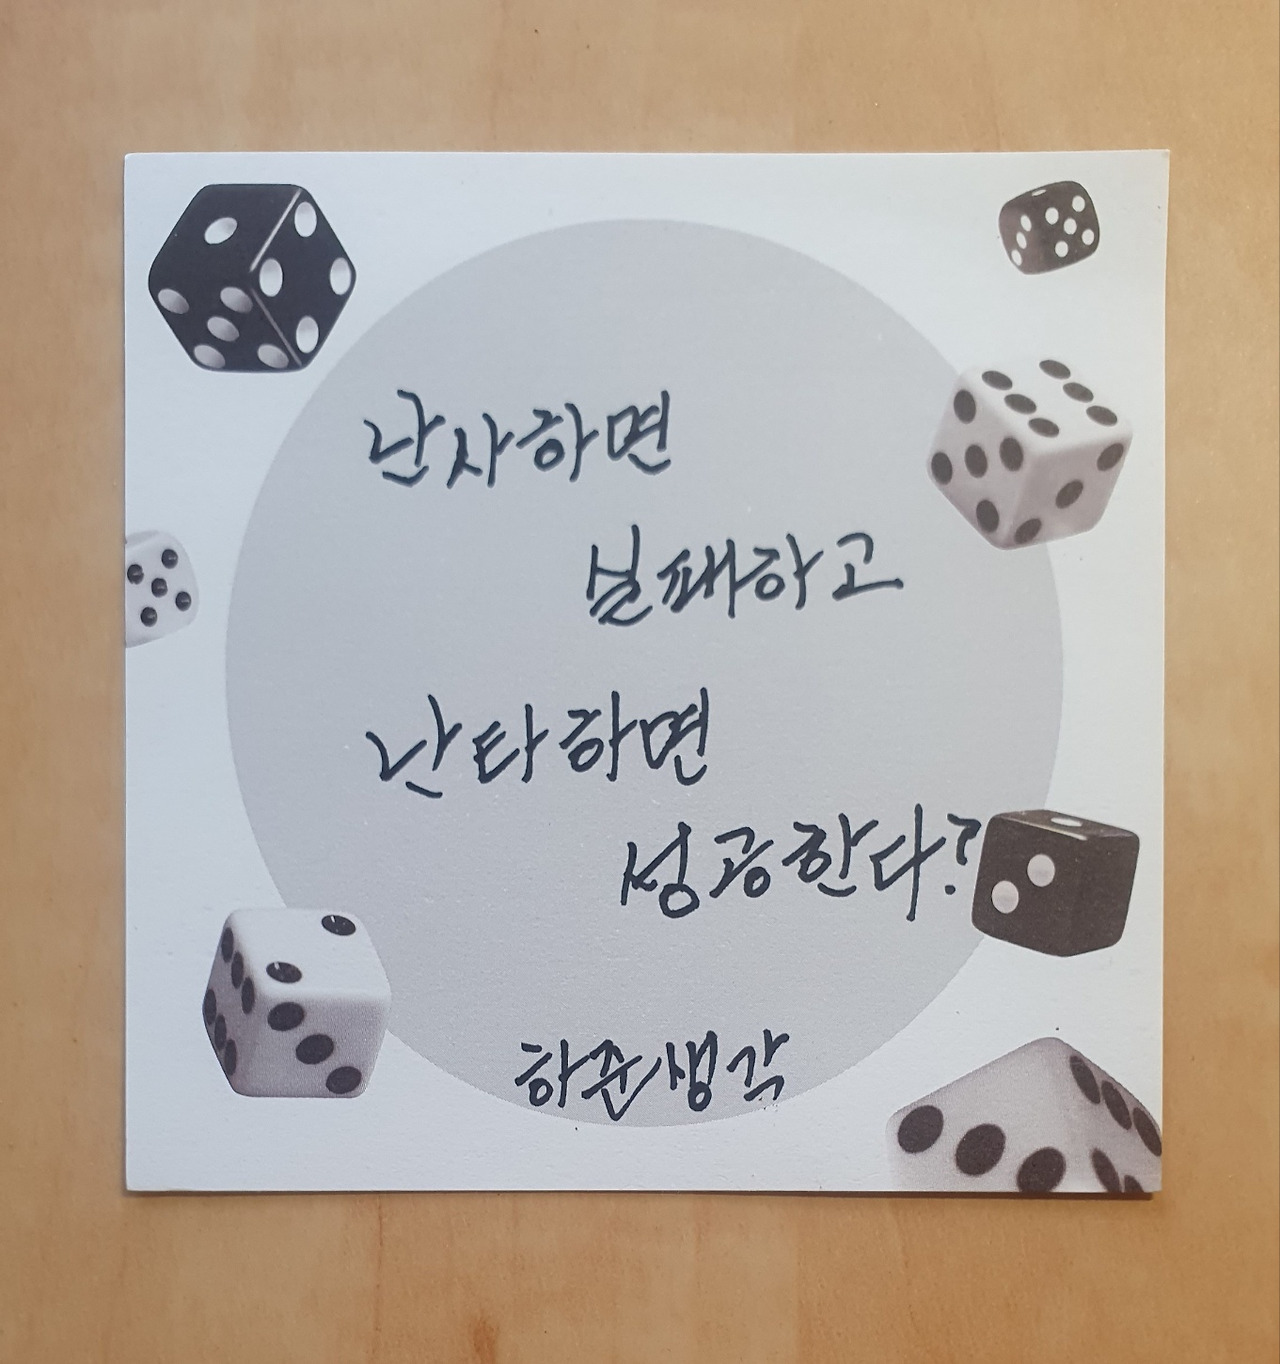 난사하면
실패하고
난타하면
성공한다?
하준생각